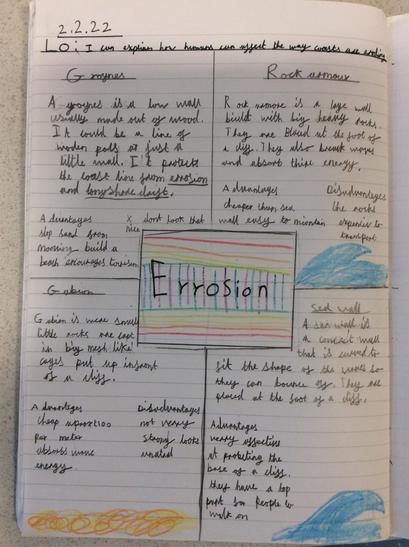 2.2.22
Lo: I can explain how humans can affect the way coasts are eroding
Groynes
A groynes is a low wall
usually made out of wood.
It could be a line of
wooden pols or just a
little wall. I't protects
the coast line from erossion
and longshore darft.
Advantages
stop sand from
moveing build a
beach encourages tourisem
x dont look that
nice
Rock armour
Rock armore is a large wall
build with big heavy rocks.
They are placed at the foot of
a cliff. They also break waves
and absorb thire energy.
Advantages
cheaper than sea
wall easy to maintain
Disadvantages
the rocks
expensive to
transport
Errosion
Gabion
Gabion is were small
little rocks are kept
in big mesh like
cages put up infront
of a cliff.
Advantages
cheap
per meter
absorb wave
energy.
Disadvantages
not verry
strong looks
Sea wall
A sea wall is
a concret wall
that is curved to
fit the shape of the waves so
they can bounce off. They are
placed at the foot of a cliff.
Advantages
verry affective
at protecting the
base of a cliff.
they have a top
part for people to
walk on